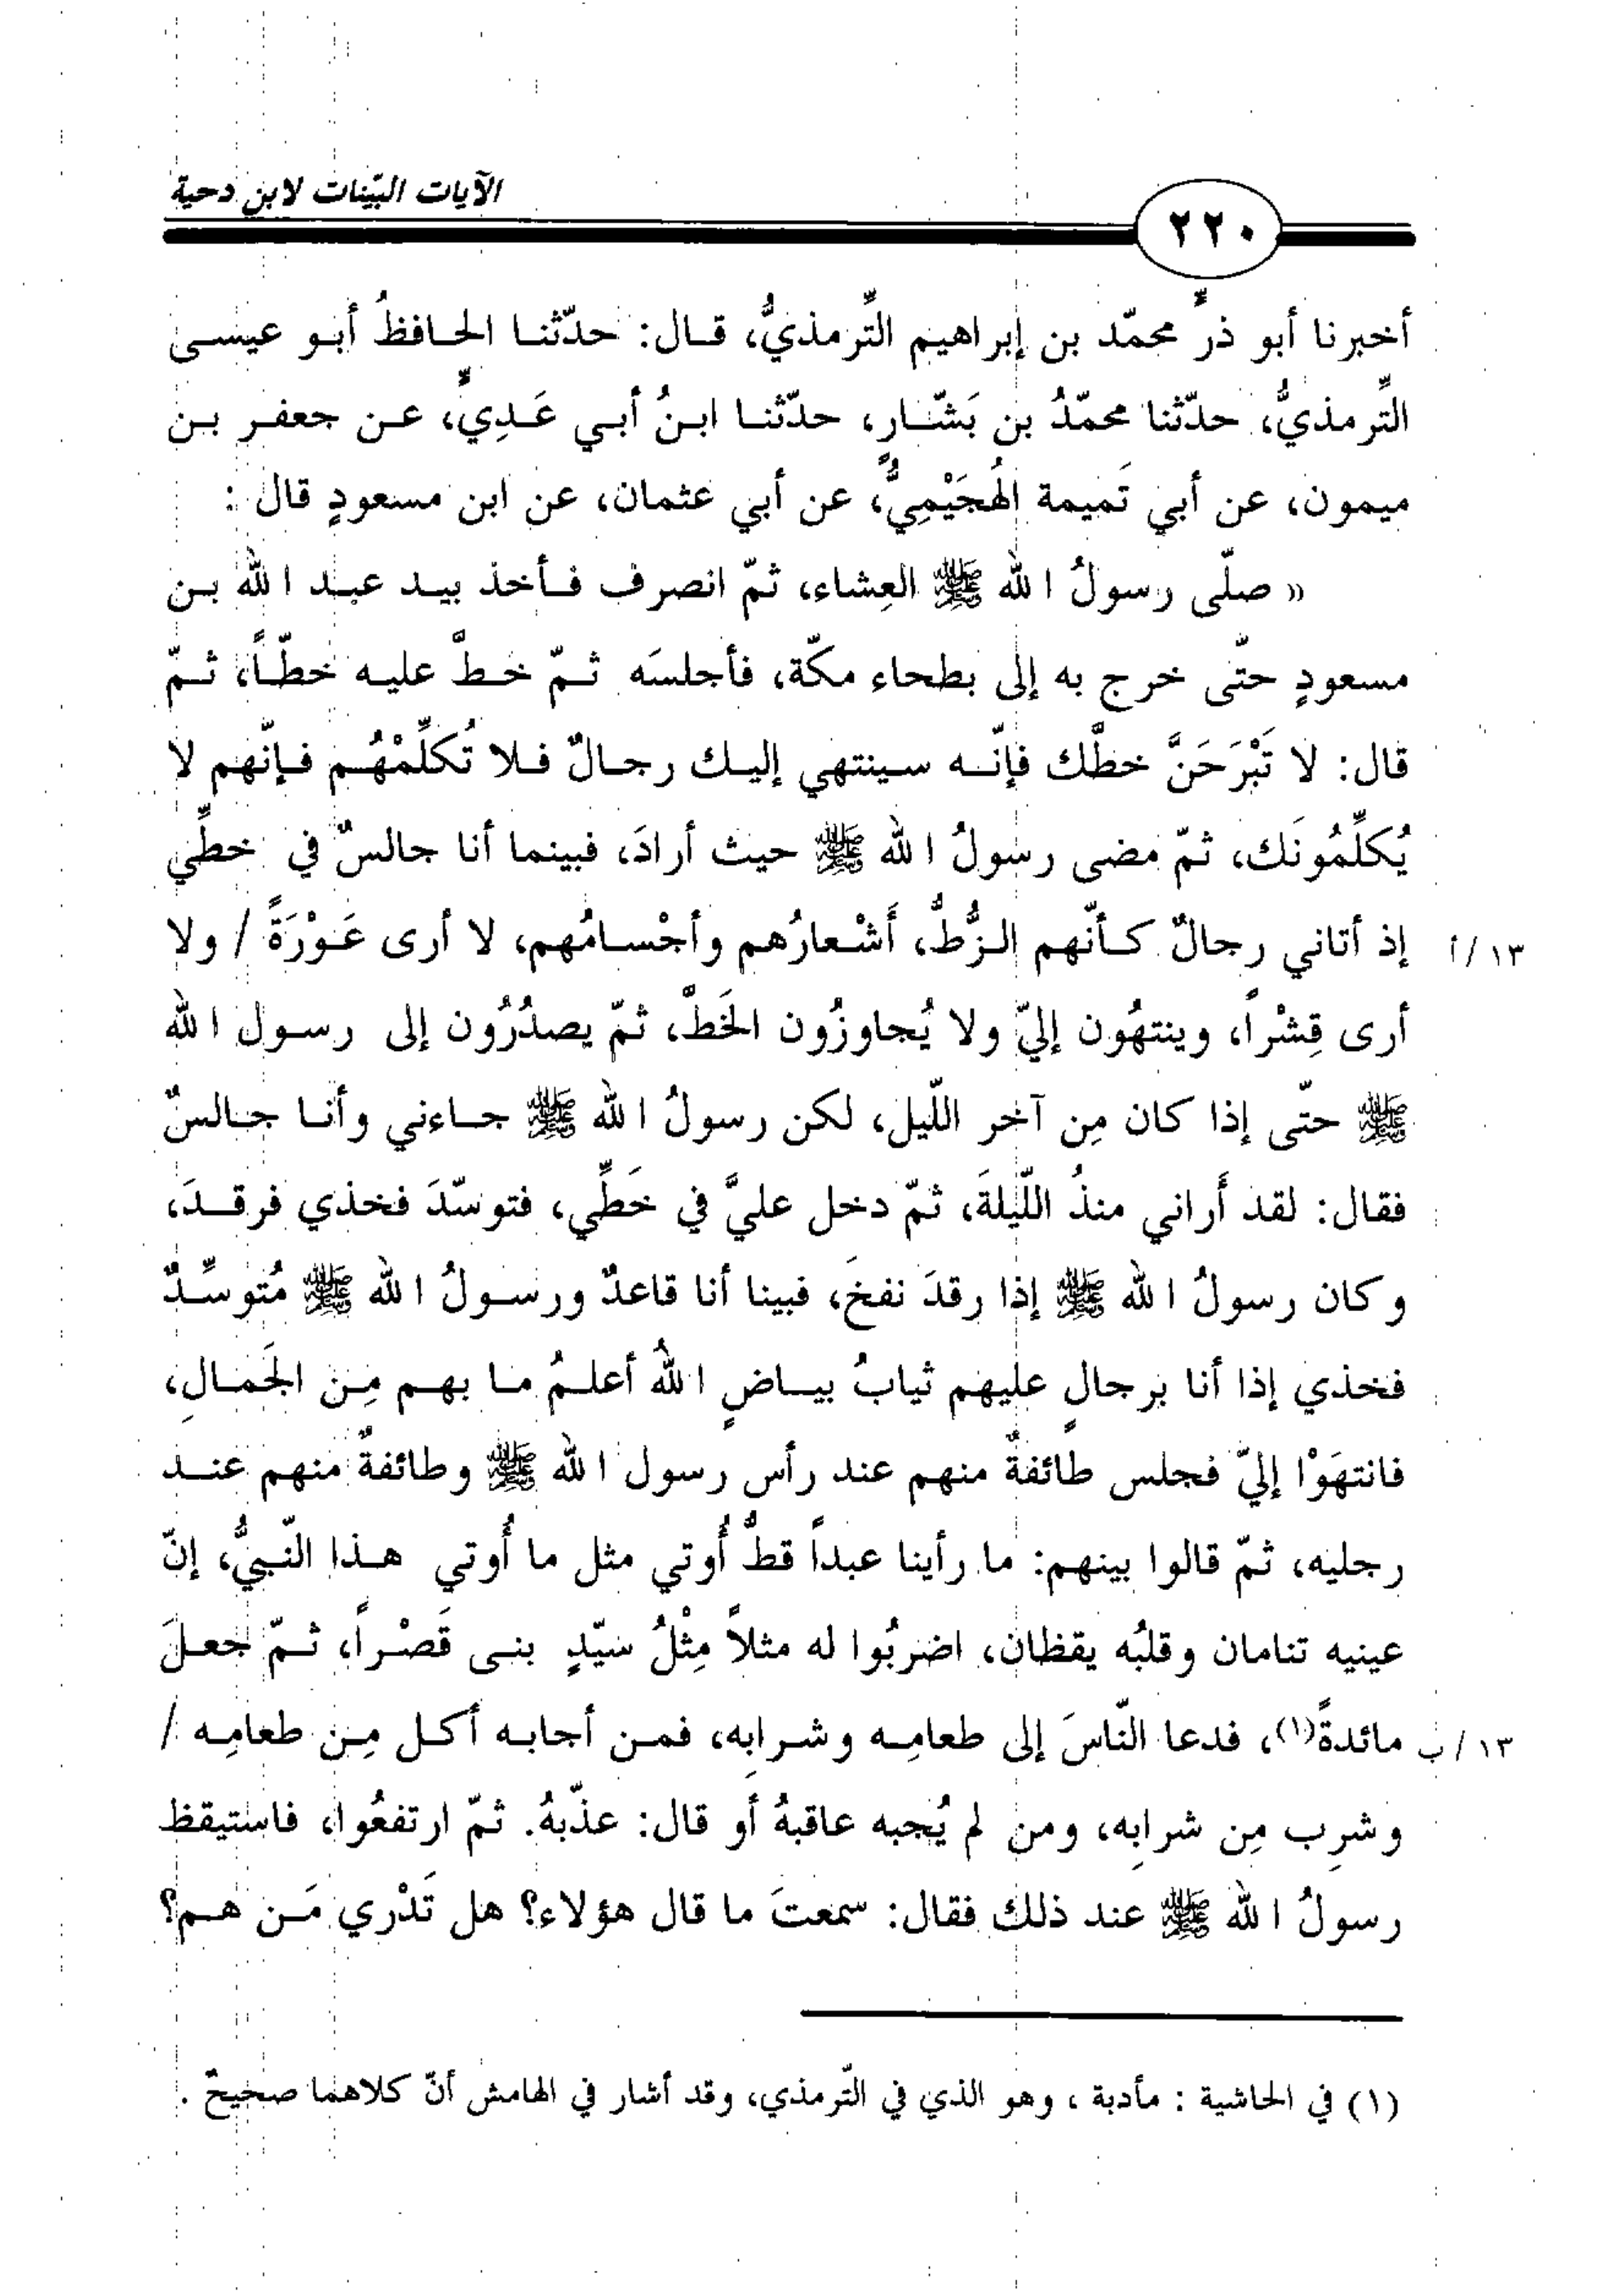 الآيات البيّنات لابن دحية
٢٢٠
أخبرنا أبو ذرٍّ محمّد بن إبراهيم التِّرمذيُّ، قال: حدّثنا الحافظُ أبو عيسى
التِّرمذيُّ، حدّثنا محمّدُ بن بَشّارٍ، حدّثنا ابنُ أبي عَدِيٍّ، عن جعفر بن
ميمون، عن أبي تَميمة الهُجَيْمِيُّ، عن أبي عثمان، عن ابن مسعودٍ قال :
« صلّى رسولُ الله ﷺ العِشاء، ثمّ انصرف فأخذ بيد عبد الله بن
مسعودٍ حتّى خرج به إلى بطحاء مكّة، فأجلسَه ثمّ خطَّ عليه خطّاً، ثمّ
قال: لا تَبْرَحَنَّ خطَّك فإنّه سينتهي إليك رجالٌ فلا تُكلِّمْهُم فإنّهم لا
يُكلِّمُونَك، ثمّ مضى رسولُ الله ﷺ حيث أرادَ، فبينما أنا جالسٌ في خطِّي
إذ أتاني رجالٌ كأنّهم الزُّطُّ، أَشْعارُهم وأجْسامُهم، لا أرى عَوْرَةً / ولا ١٣/أ
أرى قِشْراً، وينتهُون إليّ ولا يُجاوزُون الخَطَّ، ثمّ يصدُرُون إلى رسول الله
ﷺ حتّى إذا كان مِن آخر اللّيل، لكن رسولُ الله ﷺ جاءني وأنا جالسٌ
فقال: لقد أَراني منذُ اللّيلةَ، ثمّ دخل عليَّ في خَطِّي، فتوسّدَ فخذي فرقدَ،
وكان رسولُ الله ﷺ إذا رقدَ نفخَ، فبينا أنا قاعدٌ ورسولُ الله ﷺ مُتوسِّدٌ
فخذي إذا أنا برجالٍ عليهم ثيابُ بياضٍ اللهُ أعلمُ ما بهم مِن الجَمالِ،
فانتهَوْا إليّ فجلس طائفةٌ منهم عند رأس رسول الله ﷺ وطائفةٌ منهم عند
رجليه، ثمّ قالوا بينهم: ما رأينا عبداً قطُّ أُوتي مثل ما أُوتي هذا النّبيُّ، إنّ
عينيه تنامان وقلبُه يقظان، اضربُوا له مثلاً مِثْلُ سيّدٍ بنى قَصْراً، ثمّ جعلَ
مائدةً(١)، فدعا النّاسَ إلى طعامِه وشرابِه، فمن أجابه أكل مِن طعامِه / ١٣/ب
وشرِب مِن شرابِه، ومن لم يُجبه عاقبهُ أو قال: عذّبهُ. ثمّ ارتفعُوا، فاستيقظ
رسولُ الله ﷺ عند ذلك فقال: سمعتَ ما قال هؤلاء؟ هل تَدْري مَن هم؟
(١) في الحاشية : مأدبة ، وهو الذي في التّرمذي، وقد أشار في الهامش أنّ كلاهما صحيحٌ .